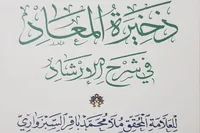 ذخيرة المعاد
في شرح الإرشاد
للعلامة المحقق ملا محمد باقر السبزواري